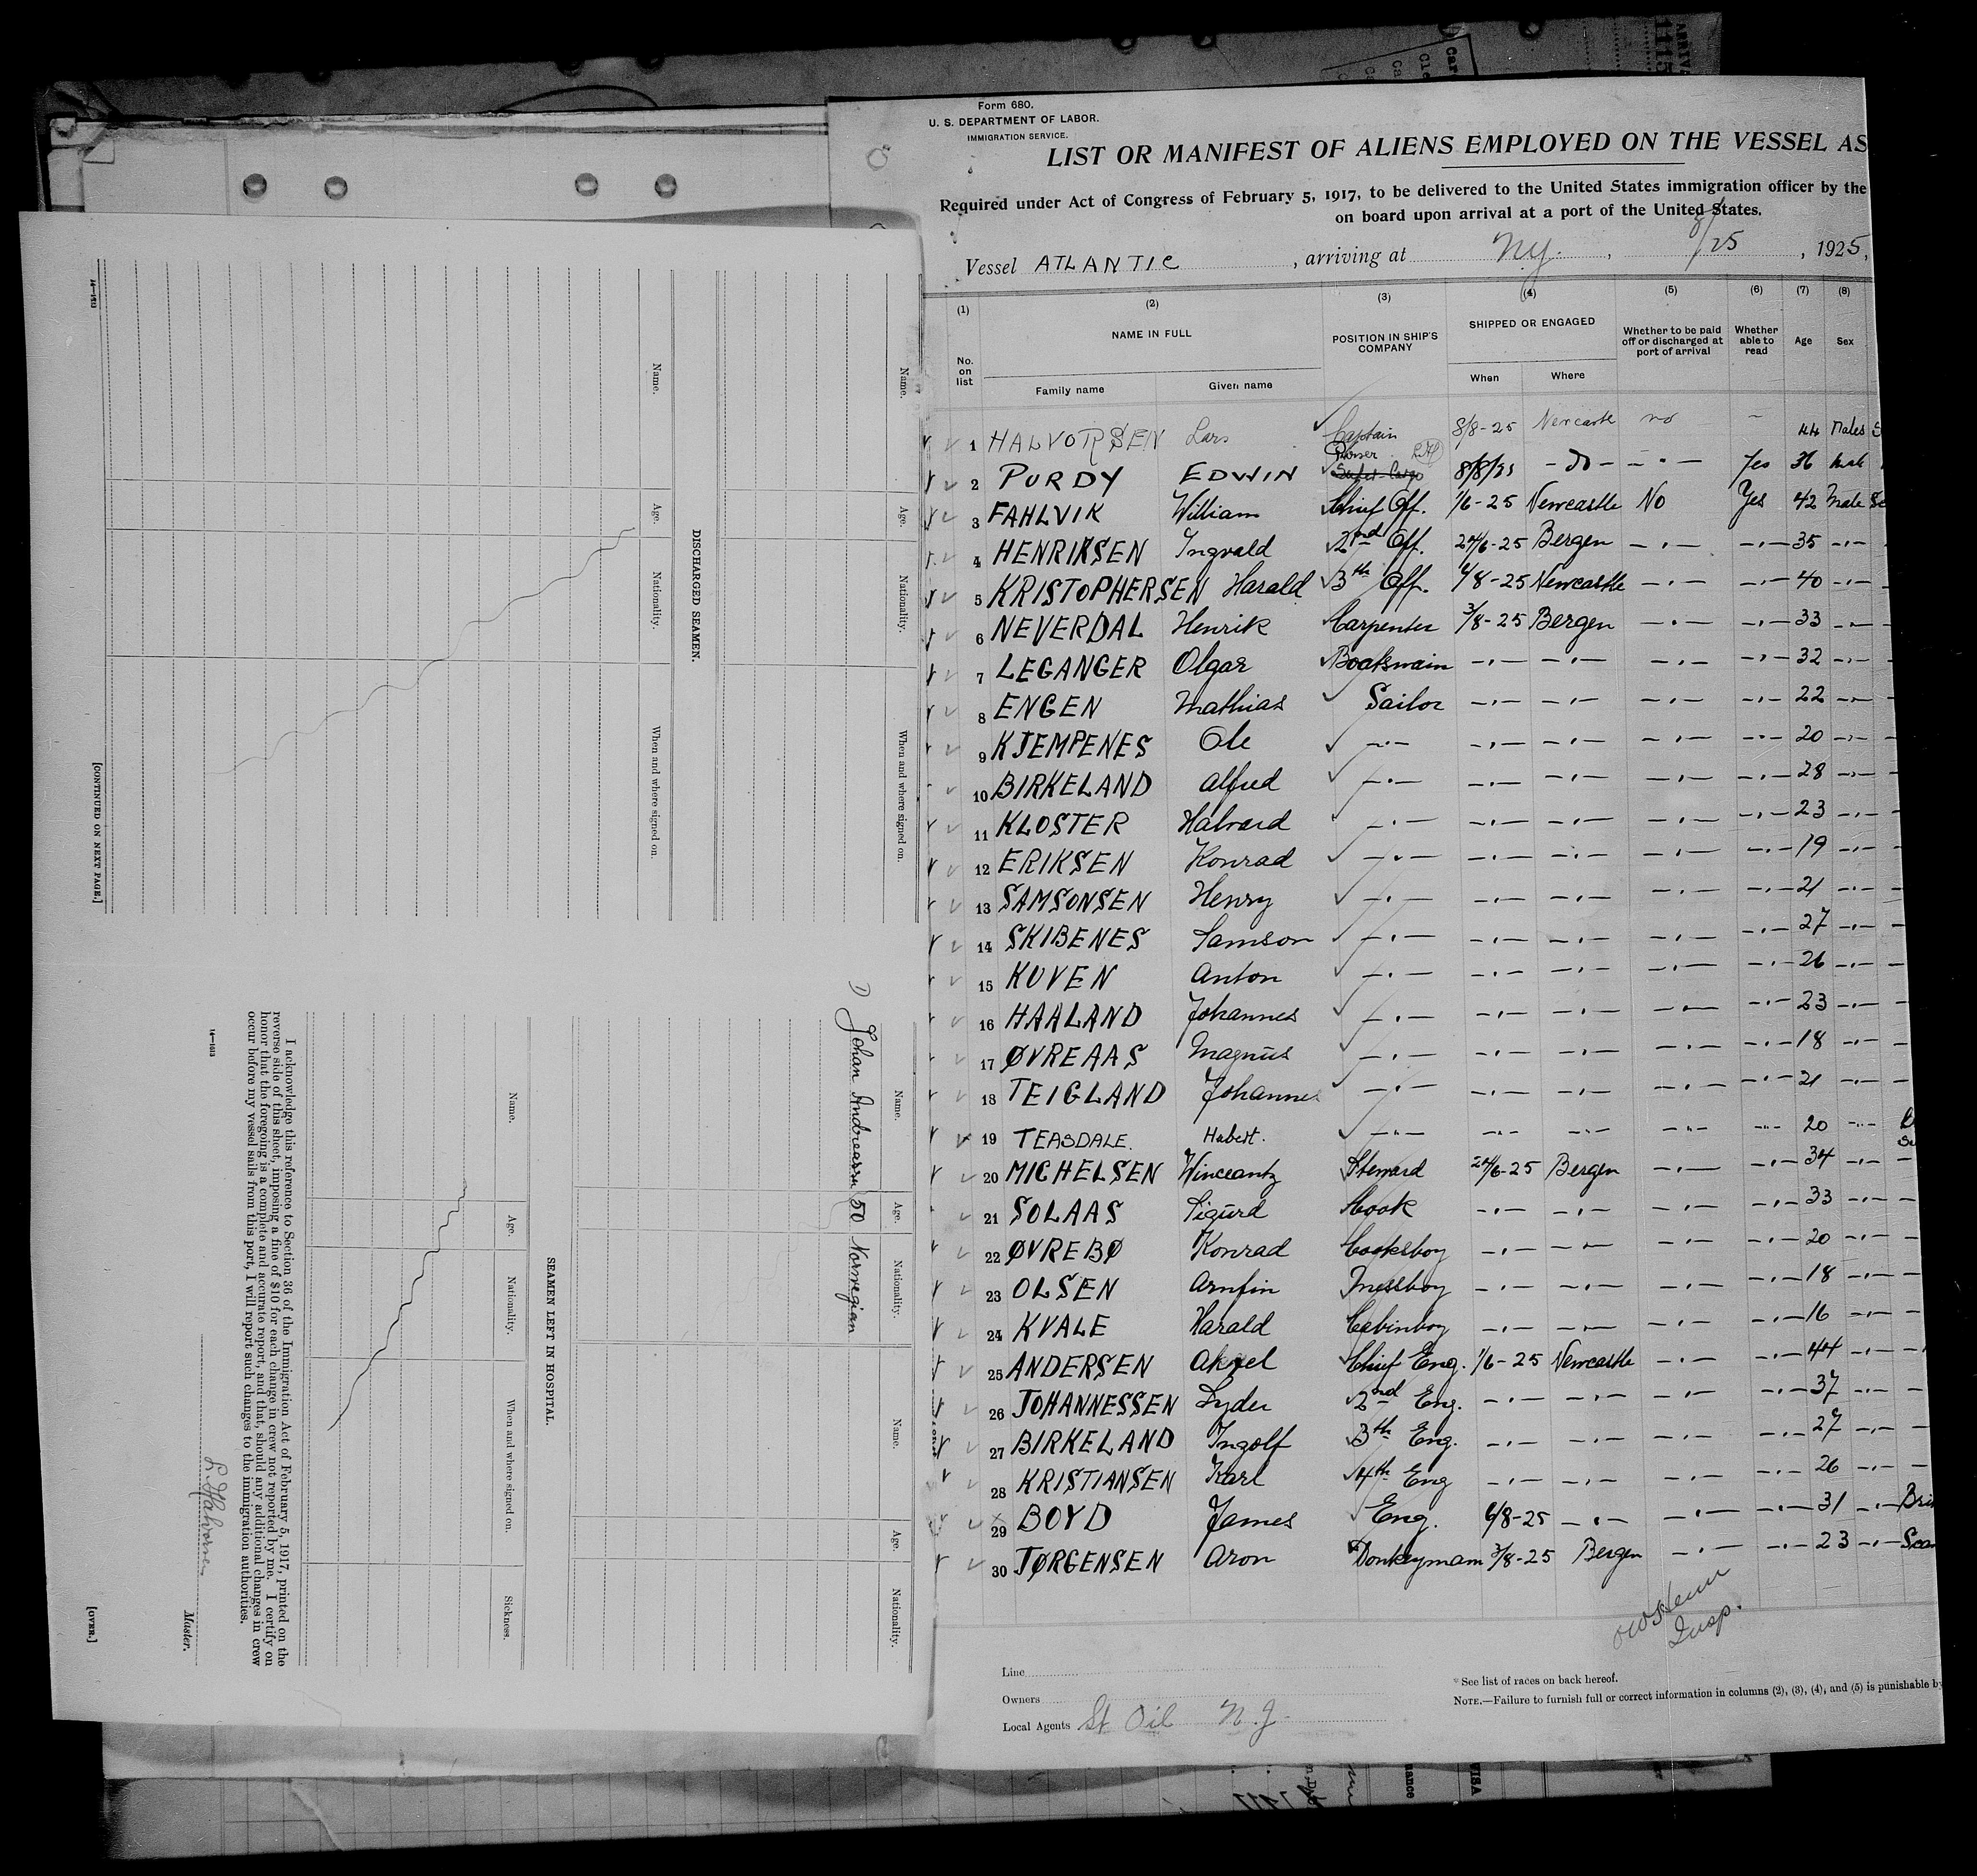 Form 680.
U. S. DEPARTMENT OF LABOR.
IMMIGRATION SERVICE.
LIST OR MANIFEST OF ALIENS EMPLOYED ON THE VESSEL AS
Required under Act of Congress of February 5, 1917, to be delivered to the United States immigration officer by the
on board upon arrival at a port of the United States.
Vessel ATLANTIC , arriving at N.Y. , 8/25 , 1925,
(1) (2) (3) (4) (5) (6) (7) (8)
No. on list NAME IN FULL POSITION IN SHIP'S COMPANY SHIPPED OR ENGAGED Whether to be paid off or discharged at port of arrival Whether able to read Age Sex
Family name Given name When Where
1 HALVORSEN Lars Captain 8/8-25 Newcastle no – 44 Males S
Purser
2 PURDY EDWIN Super Cargo 8/8/25 - Do - – " – Yes 36 Male
3 FAHLVIK William Chief Off. 1/6-25 Newcastle No Yes 42 Male Sc
4 HENRIKSEN Ingvald 2nd Off. 24/6-25 Bergen –"– –"– 35 –"–
5 KRISTOPHERSEN Harald 3th Off. 6/8-25 Newcastle –"– –"– 40 –"–
6 NEVERDAL Henrik Carpenter 3/8-25 Bergen –"– –"– 33 –"–
7 LEGANGER Olgar Boatswain –"– –"– –"– –"– 32 –"–
8 ENGEN Mathias Sailor –"– –"– –"– –"– 22 –"–
9 KJEMPENES Ole –"– –"– –"– –"– –"– 20 –"–
10 BIRKELAND Alfred –"– –"– –"– –"– –"– 28 –"–
11 KLOSTER Halvard –"– –"– –"– –"– –"– 23 –"–
12 ERIKSEN Konrad –"– –"– –"– –"– –"– 19 –"–
13 SAMSONSEN Henry –"– –"– –"– –"– –"– 21 –"–
14 SKIBENES Samson –"– –"– –"– –"– –"– 27 –"–
15 KUVEN Anton –"– –"– –"– –"– –"– 26 –"–
16 HAALAND Johannes –"– –"– –"– –"– –"– 23 –"–
17 ØVREAAS Magnus –"– –"– –"– –"– –"– 18 –"–
18 TEIGLAND Johannes –"– –"– –"– –"– –"– 21 –"–
19 TEASDALE. Hubert. –"– –"– –"– –"– –"– 20 –"–
20 MICHELSEN Winceantz Steward 24/6-25 Bergen –"– –"– 34 –"–
21 SOLAAS Sigurd Cook –"– –"– –"– –"– 33 –"–
22 ØVREBØ Konrad Cooksboy –"– –"– –"– –"– 20 –"–
23 OLSEN Arnfin Messboy –"– –"– –"– –"– 18 –"–
24 KVALE Harald Cabinboy –"– –"– –"– –"– 16 –"–
25 ANDERSEN Aksel Chief Eng. 1/6-25 Newcastle –"– –"– 44 –"–
26 JOHANNESSEN Lyder 2nd Eng. –"– –"– –"– –"– 37 –"–
27 BIRKELAND Ingolf 3th Eng. –"– –"– –"– –"– 27 –"–
28 KRISTIANSEN Karl 4th Eng –"– –"– –"– –"– 26 –"–
29 BOYD James Eng. 6/8-25 –"– –"– –"– 31 –"– Bri
30 JØRGENSEN Aron Donkeyman 3/8-25 Bergen –"– –"– 23 –"– Sca
Insp.
Line
Owners
Local Agents St Oil N.J.
* See list of races on back hereof.
NOTE.—Failure to furnish full or correct information in columns (2), (3), (4), and (5) is punishable by
Name. Age. Nationality. When and where signed on.
DISCHARGED SEAMEN.
Name. Age. Nationality. When and where signed on.
14—1513
[CONTINUED ON NEXT PAGE.]
Name. Age. Nationality. Name. Age. Nationality.
1) Johan Andreassen 50 Norwegian
SEAMEN LEFT IN HOSPITAL.
Name. Age. Nationality. When and where signed on. Sickness.
I acknowledge this reference to Section 36 of the Immigration Act of February 5, 1917, printed on the
reverse side of this sheet, imposing a fine of $10 for each change in crew not reported by me. I certify on
honor that the foregoing is a complete and accurate report, and that, should any additional changes in crew
occur before my vessel sails from this port, I will report such changes to the immigration authorities.
14—1513
L. Halvorsen
Master.
[OVER.]